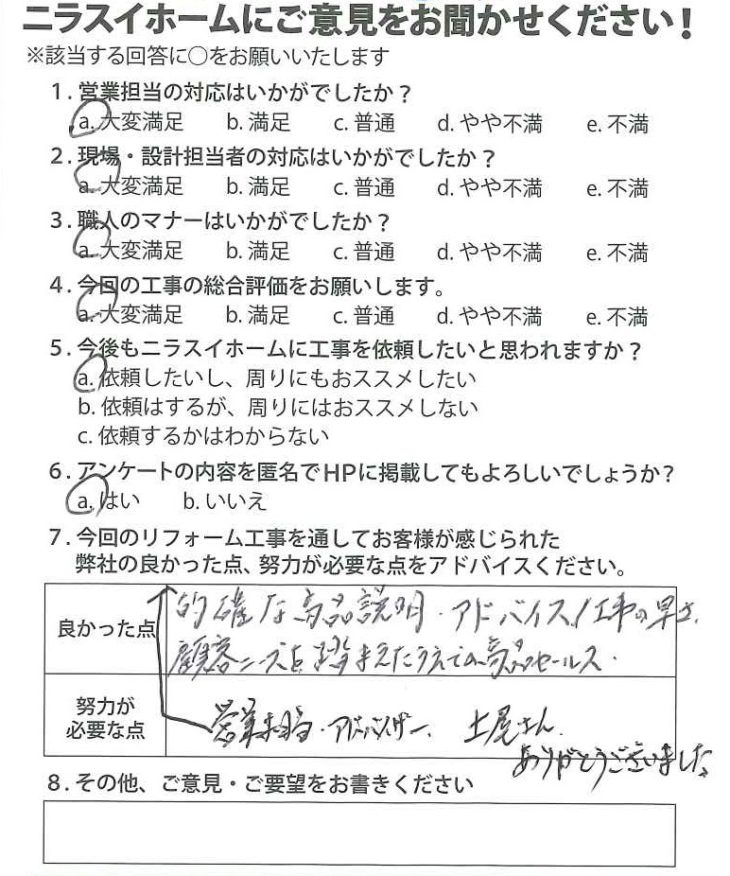 ニラスイホームにご意見をお聞かせください！
※該当する回答に○をお願いいたします
1.営業担当の対応はいかがでしたか？
a.大変満足 b.満足 c.普通 d.やや不満 e.不満
2.現場・設計担当者の対応はいかがでしたか？
a.大変満足 b.満足 c.普通 d.やや不満 e.不満
3.職人のマナーはいかがでしたか？
a.大変満足 b.満足 c.普通 d.やや不満 e.不満
4.今回の工事の総合評価をお願いします。
a.大変満足 b.満足 c.普通 d.やや不満 e.不満
5.今後もニラスイホームに工事を依頼したいと思われますか？
a.依頼したいし、周りにもおススメしたい
b.依頼はするが、周りにはおススメしない
c.依頼するかはわからない
6.アンケートの内容を匿名でHPに掲載してもよろしいでしょうか？
a.はい b.いいえ
7.今回のリフォーム工事を通してお客様が感じられた
弊社の良かった点、努力が必要な点をアドバイスください。
良かった点
的確な商品説明・アドバイス/工事の早さ、
顧客ニーズを踏まえたうえでの商品セールス・
努力が
必要な点
営業担当・アドバイザー、土屋さん
ありがとうございました。
8.その他、ご意見・ご要望をお書きください